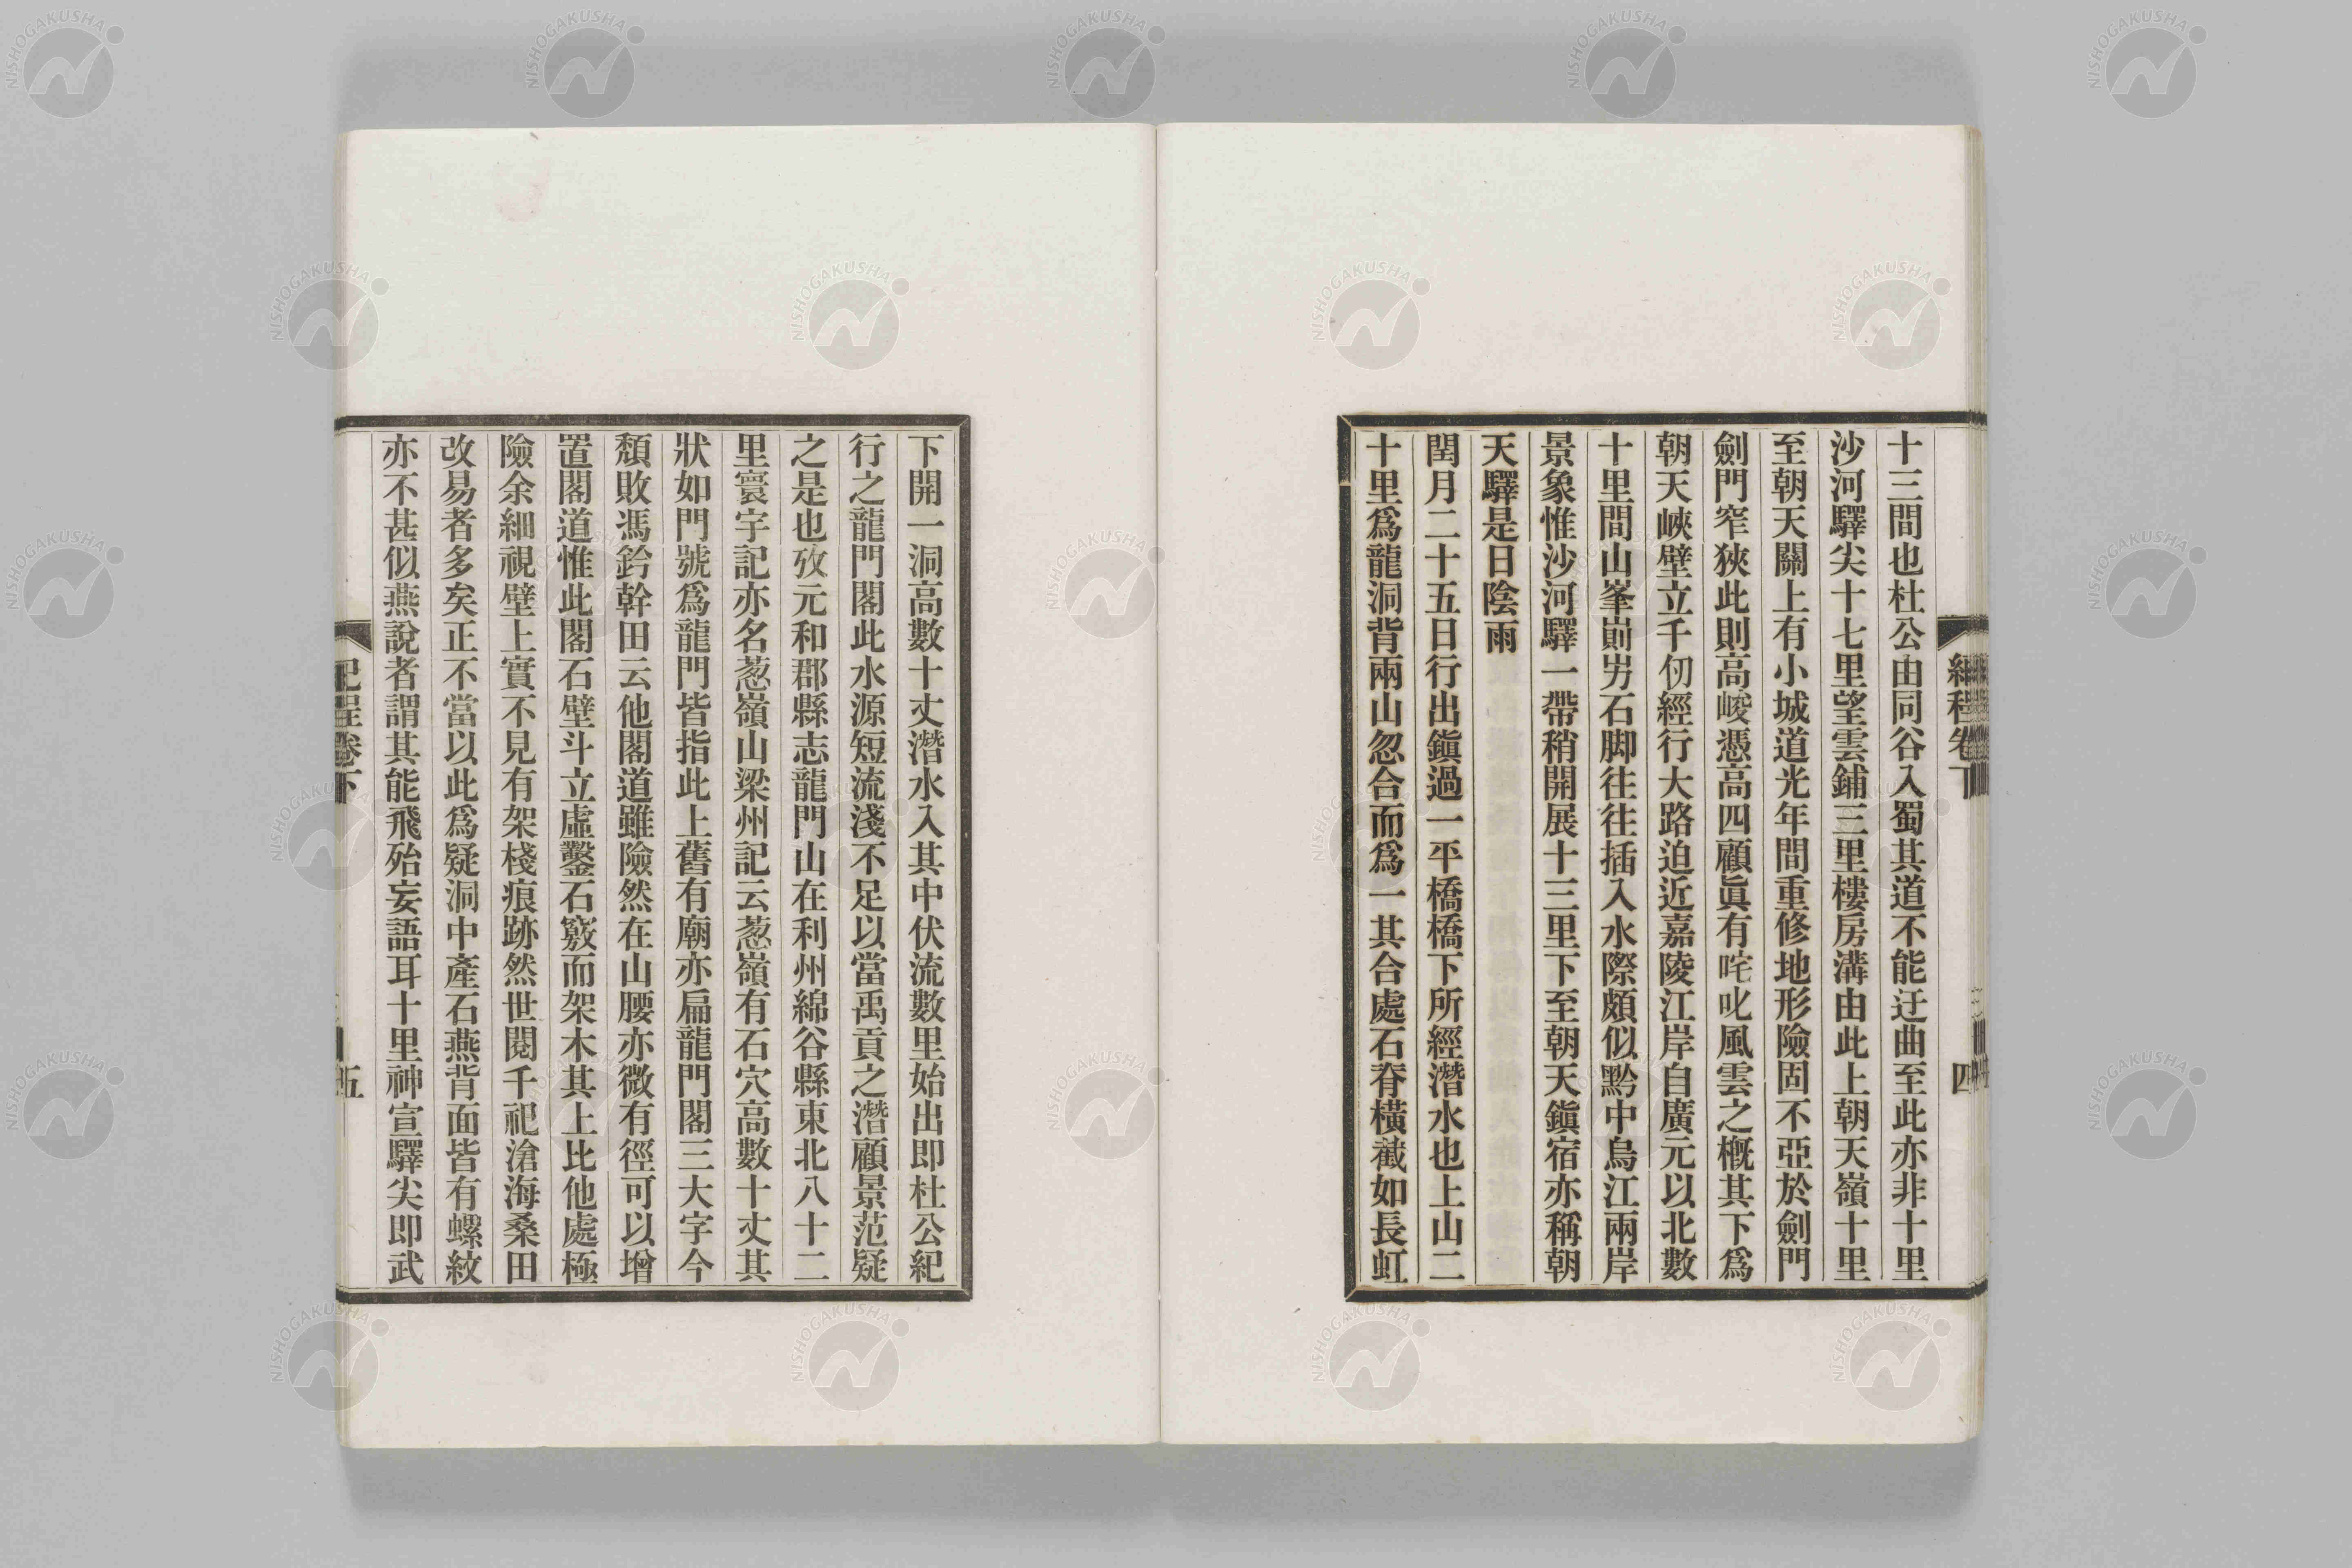 十三間也杜公由同谷入蜀其道不能迂曲至此亦非十里
沙河驛尖十七里望雲鋪三里樓房溝由此上朝天嶺十里
至朝天關上有小城道光年間重修地形險固不亞於劍門
劍門窄狹此則高峻憑高四顧眞有咤叱風雲之槪其下爲
朝天峽壁立千仞經行大路迫近嘉陵江岸自廣元以北數
十里間山峯崱屴石脚往往插入水際頗似黔中烏江兩岸
景象惟沙河驛一帶稍開展十三里下至朝天鎭宿亦稱朝
天驛是日陰雨
閏月二十五日行出鎭過一平橋橋下所經潛水也上山二
十里爲龍洞背兩山忽合而爲一其合處石脊橫截如長虹
下開一洞高數十丈潛水入其中伏流數里始出即杜公紀
行之龍門閣此水源短流淺不足以當禹貢之潛顧景范疑
之是也攷元和郡縣志龍門山在利州綿谷縣東北八十二
里寰宇記亦名葱嶺山梁州記云葱嶺有石穴高數十丈其
狀如門號爲龍門皆指此上舊有廟亦扁龍門閣三大字今
頹敗馮鈐幹田云他閣道雖險然在山腰亦微有徑可以增
置閣道惟此閣石壁斗立虛鑿石竅而架木其上比他處極
險余細視壁上實不見有架棧痕跡然世閱千祀滄海桑田
改易者多矣正不當以此爲疑洞中產石燕背面皆有螺紋
亦不甚似燕說者謂其能飛殆妄語耳十里神宣驛尖即武
程卷下
四
紀程卷下
五
NISHOGAKUSHA